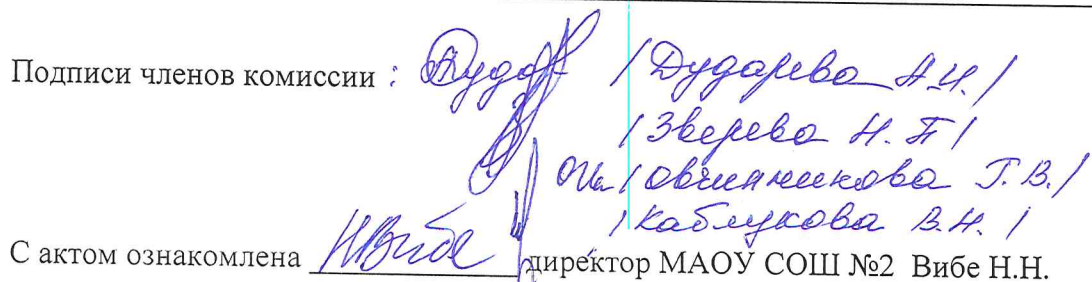 Подписи членов комиссии : /Дударева А.И./
/Зверева Н.П/
/Овчинникова Г.В./
/Каблукова В.Н./
С актом ознакомлена НВибе директор МАОУ СОШ №2 Вибе Н.Н.